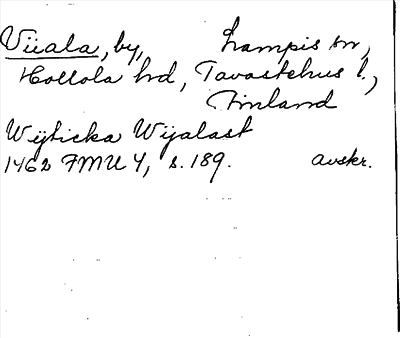 Viiala, by, Lampis sn,
Hollola hd, Tavastehus l.,
Finland
Wijticka Wijalast
1462 FMU 4, s. 189. avskr.